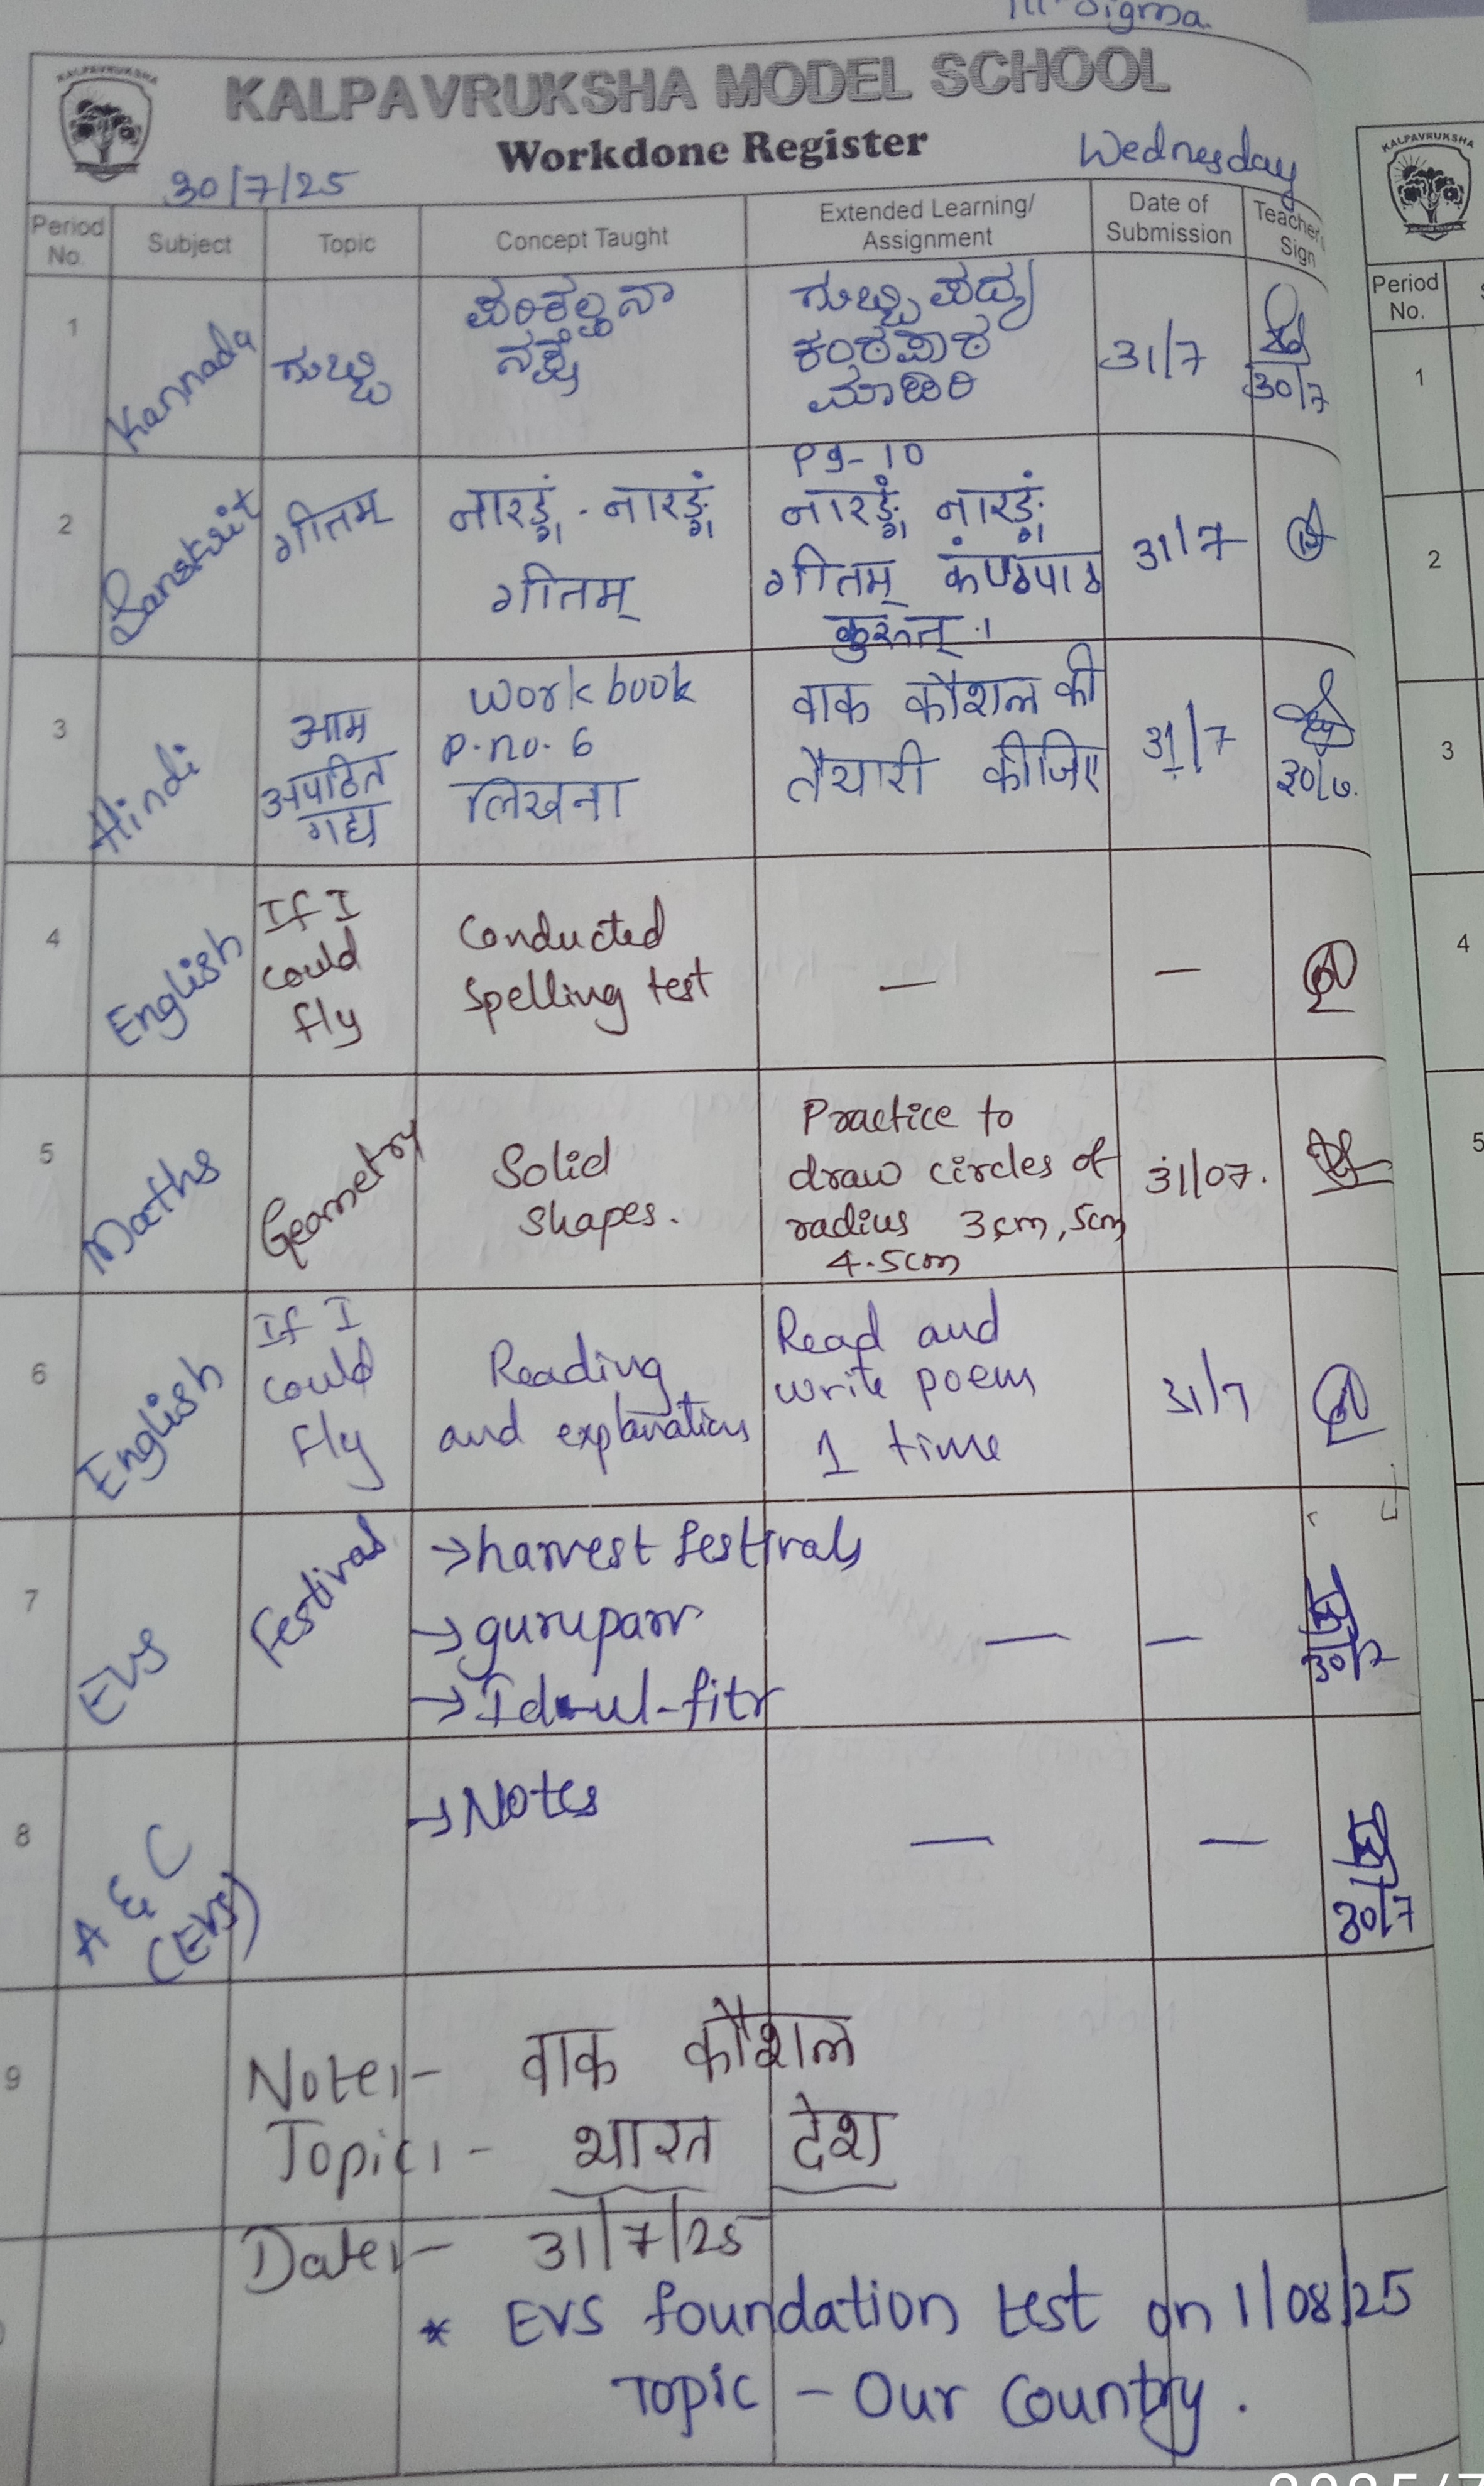 III Sigma
KALPAVRUKSHA
KALPAVRUKSHA MODEL SCHOOL
Workdone Register
30/7/25
Wednesday
Period No.
Subject
Topic
Concept Taught
Extended Learning/
Assignment
Date of
Submission
Teacher's
Sign
1
Kannada
ಗುಬ್ಬಿ
ಪರಿಕಲ್ಪನಾ
ನಕ್ಷೆ
ಗುಬ್ಬಿ ಪದ್ಯ
ಕಂಠಪಾಠ
ಮಾಡಿರಿ
31/7
30/7
2
Sanskrit
गीतम्
नारङ्गं - नारङ्गं
गीतम्
Pg-10
नारङ्गं नारङ्गं
गीतम् कंण्ठपाठ
कुरुत् ।
31/7
3
Hindi
आम
अपठित
गद्य
workbook
p.no. 6
लिखना
वाक कौशल की
तैयारी कीजिए
31/7
30/7.
4
English
If I
could
fly
Conducted
Spelling test
—
—
5
Maths
Geometry
Solid
Shapes.
Practice to
draw circles of
radius 3cm, 5cm
4.5cm
31/07.
6
English
If I
could
fly
Reading
and explanation
Read and
write poem
1 time
31/7
7
EVS
Festival
→harvest festivals
→guruparv
→Id-ul-fitr
—
—
30/7
8
A & C
(EVS)
→Notes
—
—
30/7
9
Note:- वाक कौशल
Topic:- भारत देश
Date:- 31/7/25
* EVS foundation test on 1/08/25
Topic - Our Country.
KALPAVRUKSHA
Period
No.
1
2
3
4
5